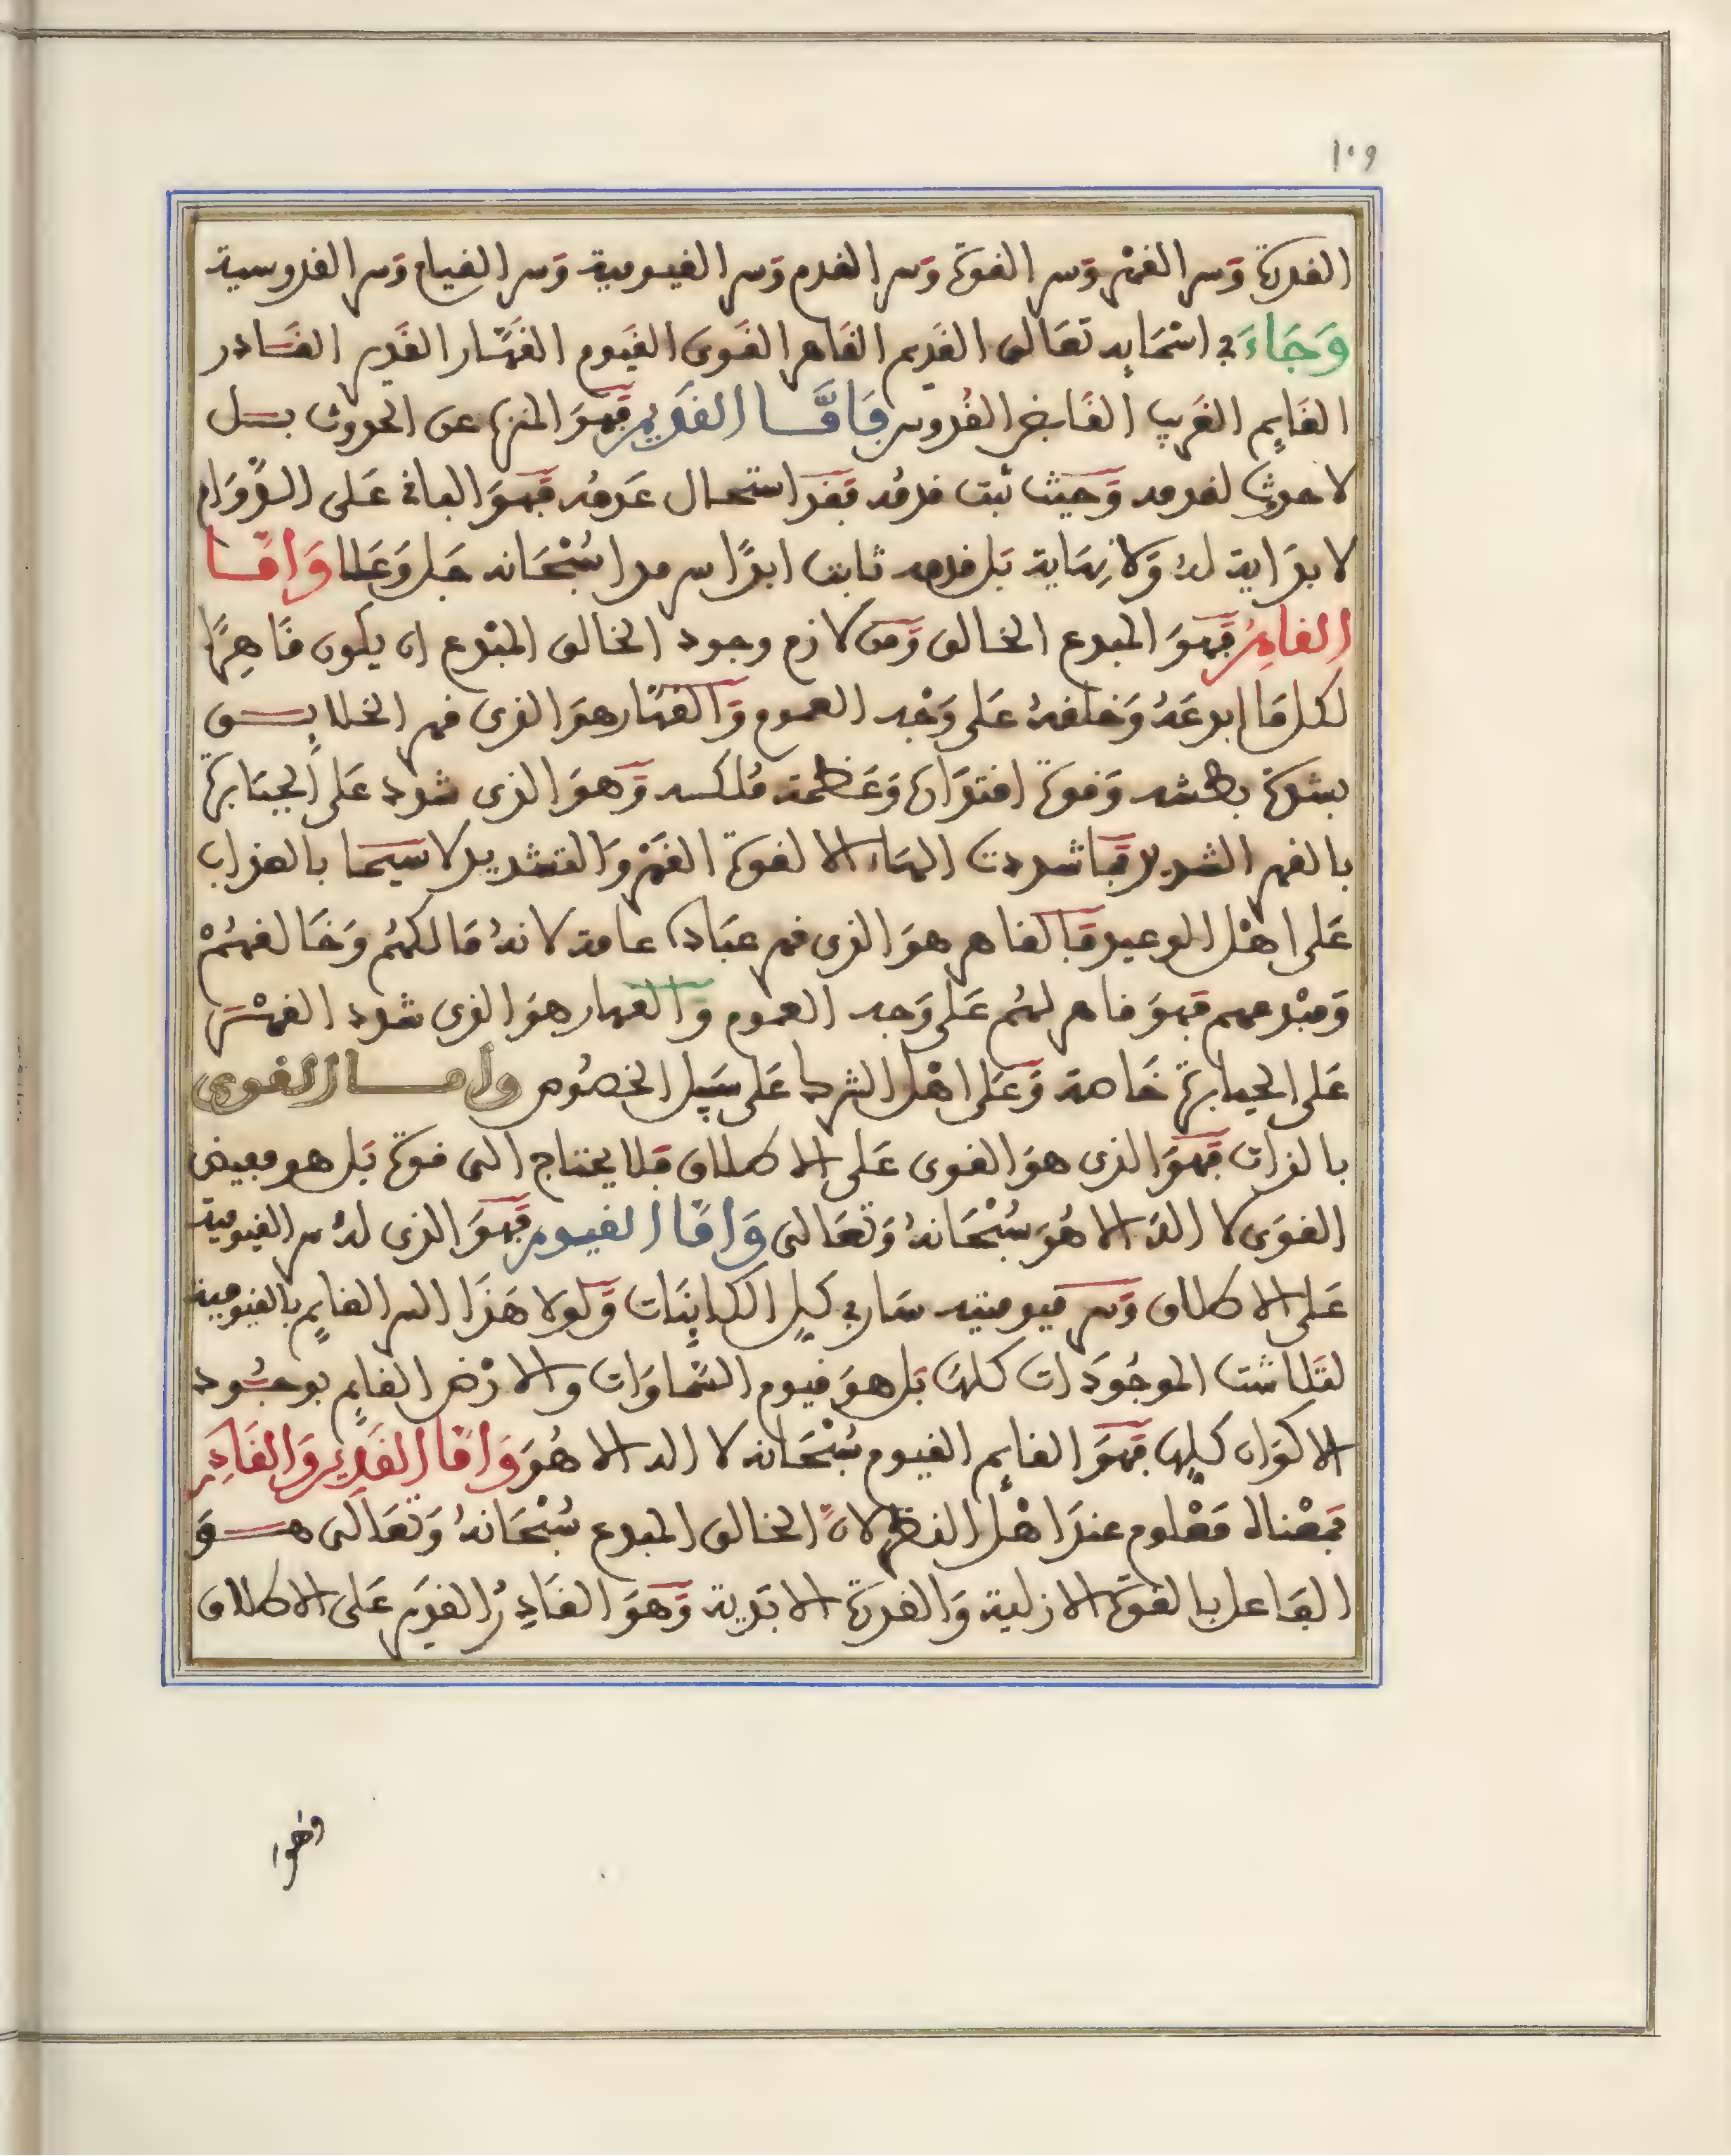 ١٠٩
القدرة وسر القهر وسر القوة وسر القدم وسر القيومية وسر القيام وسر القدوسية
وَجَاءَ في اسْمَايِه تعَالى القَدِيم القَاهر القَوى القَيوم القهَّار القَدير القَادر
القَايم القَريب القَابض القُدوس فَأَمَّا القَدِيمُ فَهوَ المنزه عن الحدوث بل
لا حدوث لقدمه وَحيث ثبت قدمُه فقد استحال عَدمُه فهوَ الباقي عَلى الدَّوَام
لا بدَاية لهُ وَلا نِهَاية بَل قدمه ثابت ابدًا سرمدا سُبْحَانه جَل وَعَلا وَامَّا
القاهِرُ فَهوَ المبدع الخالق وَمن لازم وجود الخالق المبْدع ان يكون قَاهِرًا
لكل مَا ابدعَهُ وَخلقهُ عَلى وَجْه العموم وَالقهَّار هوَ الذى قهر الخلايق
بشدة بطشه وَقوة اقتدَاره وَعَظمة مُلكه وَهوَ الذى شدد عَلى الجبَابرة
بالقهر الشديد فمَا شددت الهَاء الا لقوة القَهْر وَالتشديد لا سيمَا بالعذاب
عَلى اهْل الوعيد فَالقاهر هوَ الذى قهر عبَاده عامة لانهُ مَالكهُم وَخَالقهُمْ
وَمبْدعهم فهوَ قاهر لهُم عَلى وَجه العموم وَالقهار هوَ الذى شدد القهْر
عَلى الجبابرة خَاصة وَعَلى اهْل الشرك عَلى سَبيل الخصُوص وأما القوى
بالذات فَهوَ الذى هوَ القوى عَلى الاطلاق فَلا يحتاج الى قوة بَل هو مفيض
القوَى لا اله الا هُوَ سُبْحَانهُ وَتعَالى وَامَّا القيوم فَهوَ الذى لهُ سر القيومية
عَلى الاطلاق وَسر قيوميته سَار في كل الكاينَات وَلولا هَذَا السر القايم بالقيومية
لتَلاشت الموجُودَات كلهَا بَل هوَ قيوم السَّماوَات والارْض القايم بوجُود
الاكوَان كلها فَهوَ القايم القيوم سُبْحَانه لا اله الا هُوَ وَامَّا القَدِير وَالقَادِر
فمَعْناه مَعْلوم عندَ اهْل النظر لانَّ الخالق المبدع سُبْحَانهُ وَتعَالى هوَ
الفَاعل بالقوة الازلية وَالقدرة الابَدية وَهوَ القَادِرُ القدير عَلى الاطلاق
وهو